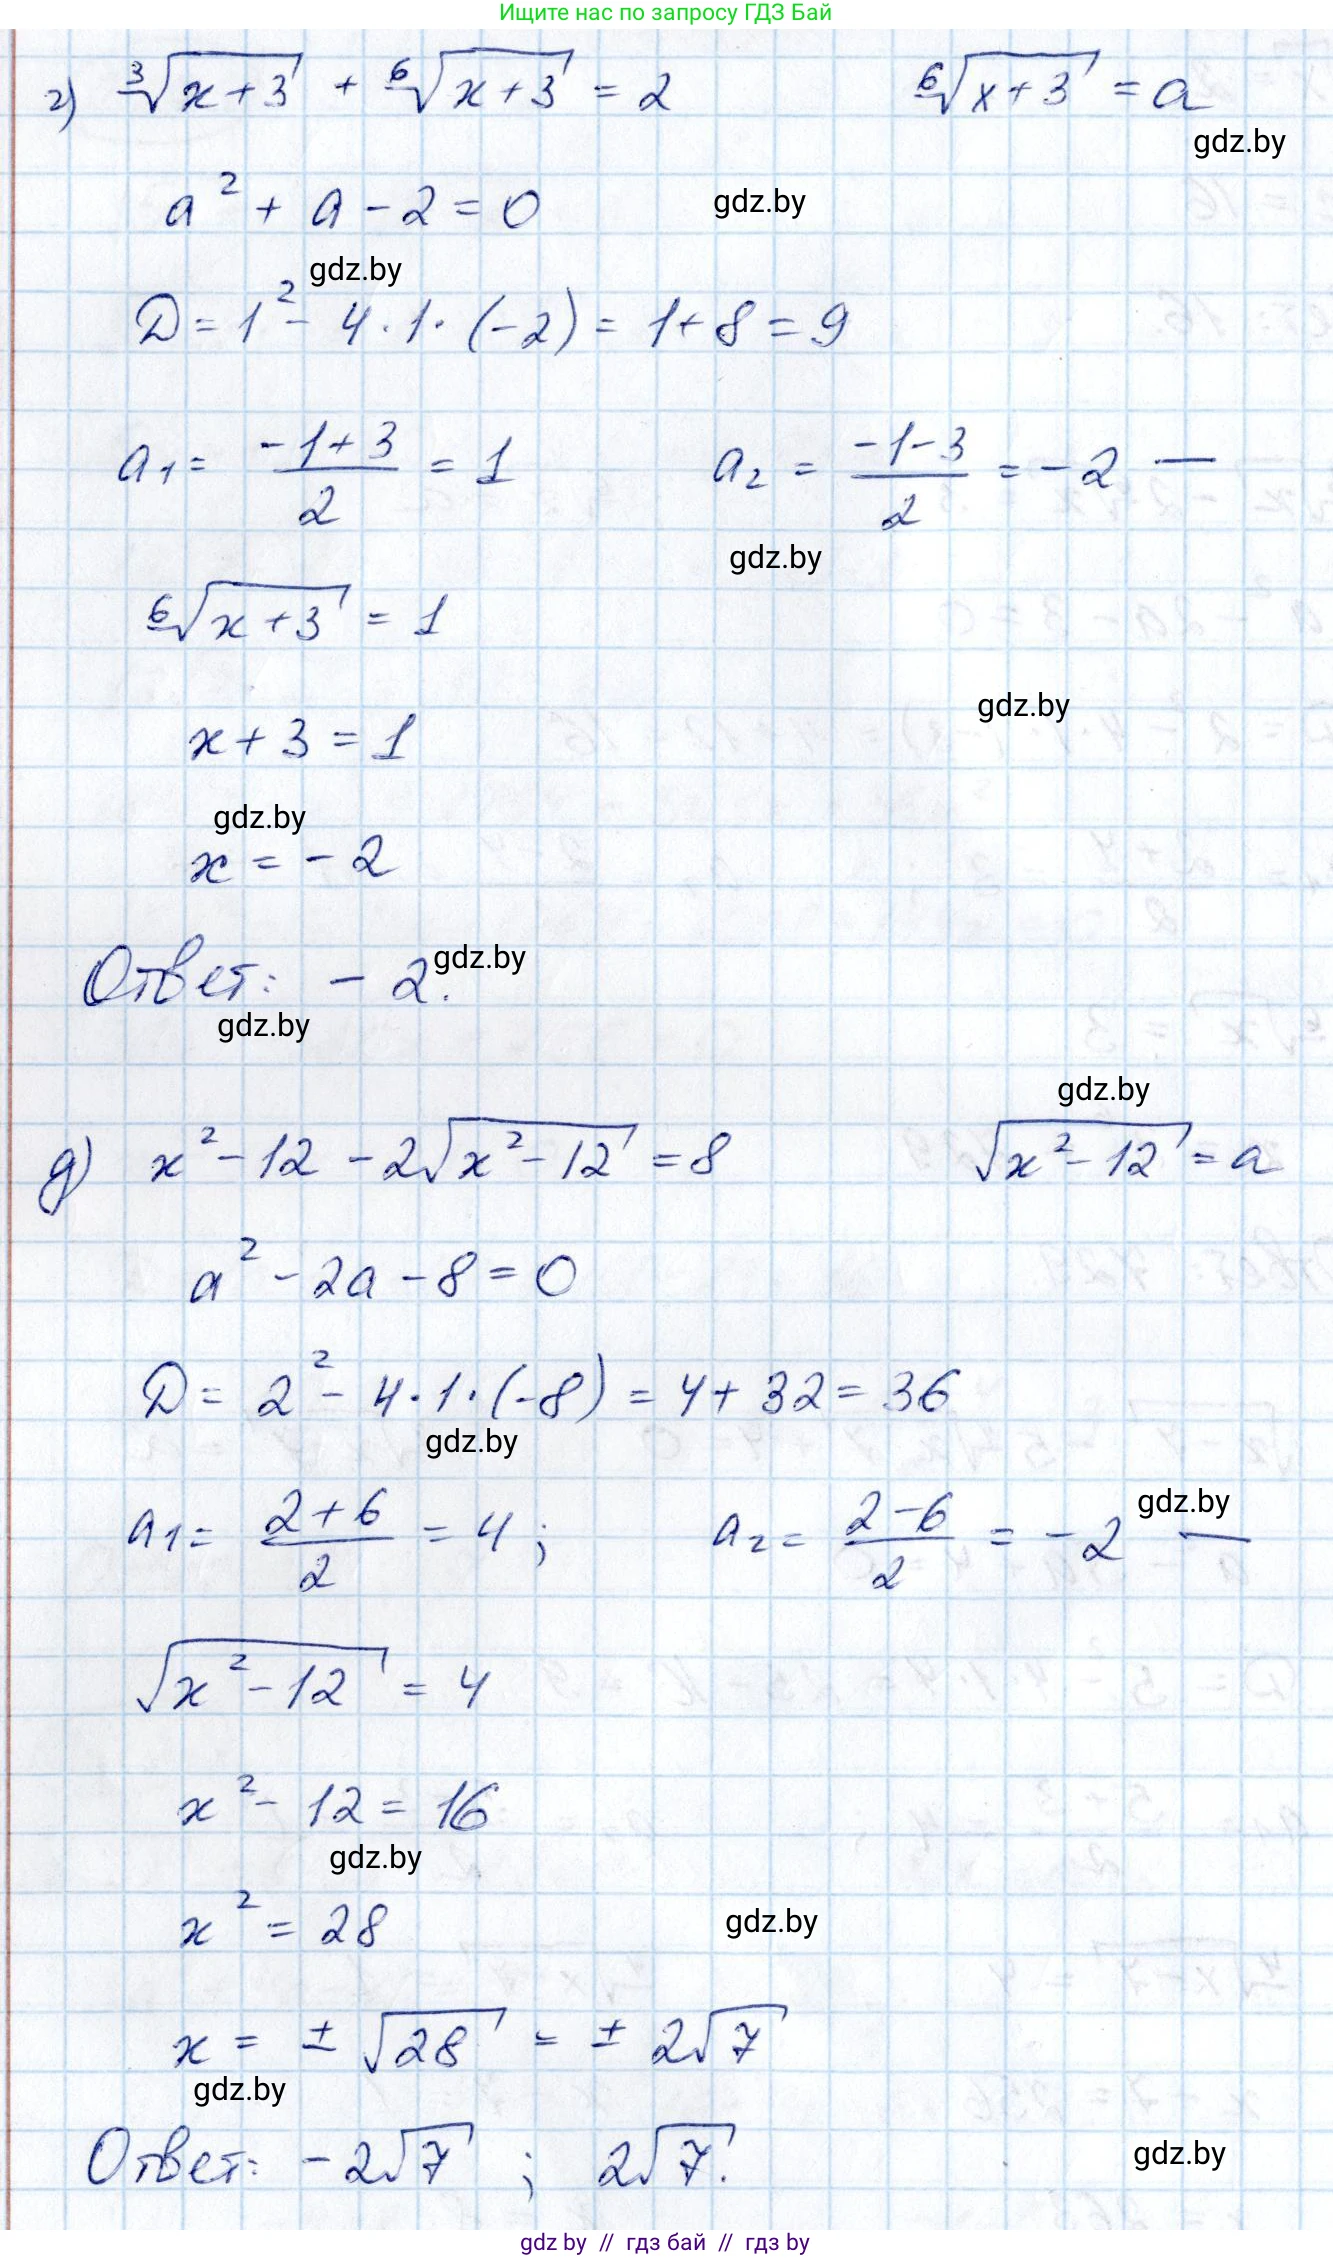 Ищите нас по запросу ГДЗ Бай
г) ∛(x+3) + ⁶√(x+3) = 2 ⁶√(x+3) = a
gdz.by
a² + a - 2 = 0 gdz.by
gdz.by
D = 1² - 4·1·(-2) = 1+8 = 9
a₁ = (-1+3)/2 = 1 a₂ = (-1-3)/2 = -2 —
gdz.by
⁶√(x+3) = 1
gdz.by
x+3 = 1
gdz.by
x = -2
Ответ: -2. gdz.by
gdz.by
gdz.by
д) x² - 12 - 2√(x² - 12) = 8 √(x² - 12) = a
a² - 2a - 8 = 0
D = 2² - 4·1·(-8) = 4 + 32 = 36
gdz.by
gdz.by
a₁ = (2+6)/2 = 4 ; a₂ = (2-6)/2 = -2 —
√(x² - 12) = 4
x² - 12 = 16
gdz.by
x² = 28 gdz.by
x = ± √28 = ± 2√7
gdz.by
Ответ: -2√7 ; 2√7. gdz.by
gdz by // гдз бай // гдз by